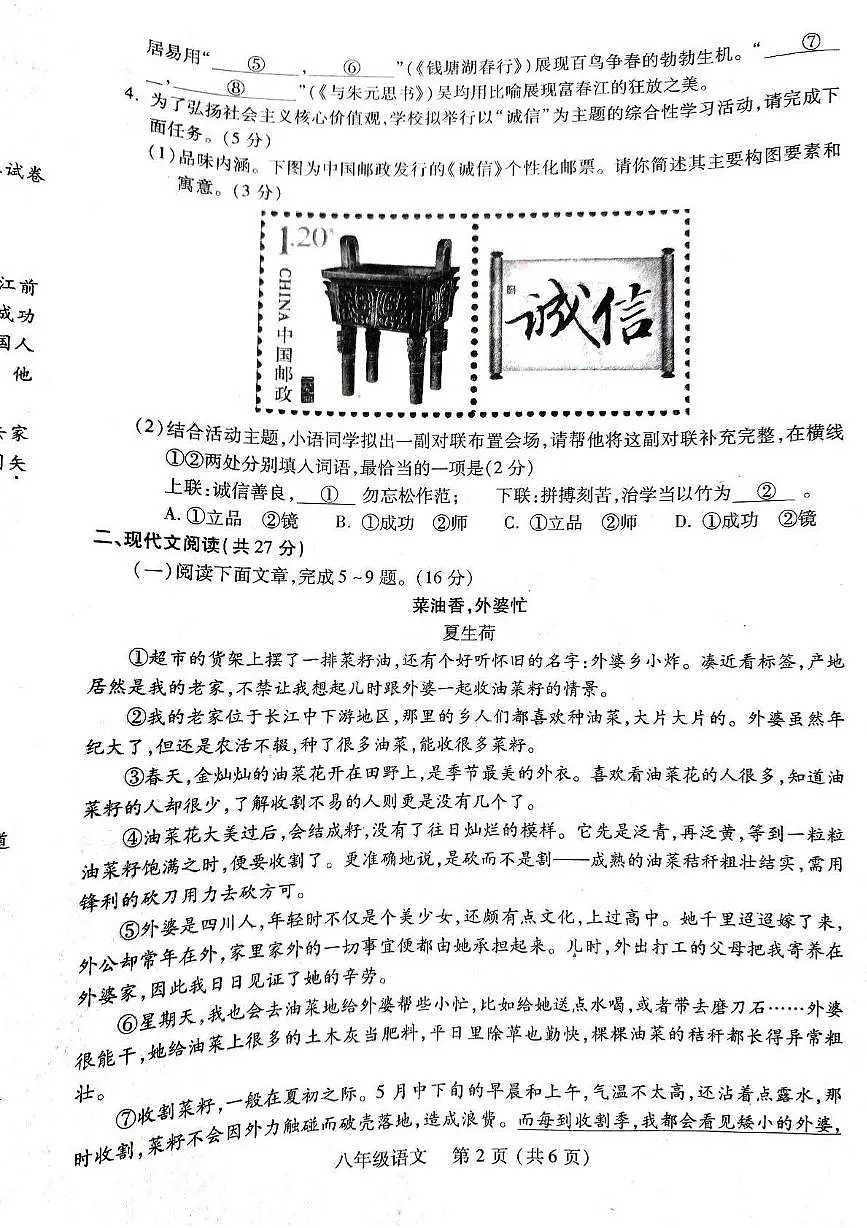 居易用“ ⑤ , ⑥ ”(《钱塘湖春行》)展现百鸟争春的勃勃生机。“ ⑦
, ⑧ ”(《与朱元思书》)吴均用比喻展现富春江的狂放之美。
4. 为了弘扬社会主义核心价值观,学校拟举行以“诚信”为主题的综合性学习活动,请完成下
面任务。(5分)
(1)品味内涵。下图为中国邮政发行的《诚信》个性化邮票。请你简述其主要构图要素和
寓意。(3分)
试卷
江前
成功
国人
他
家
矢
道
1.20
CHINA 中国邮政
诚信
(2)结合活动主题,小语同学拟出一副对联布置会场,请帮他将这副对联补充完整,在横线
①②两处分别填入词语,最恰当的一项是(2分)
上联:诚信善良, ① 勿忘松作范; 下联:拼搏刻苦,治学当以竹为 ② 。
A. ①立品 ②镜 B. ①成功 ②师 C. ①立品 ②师 D. ①成功 ②镜
二、现代文阅读(共27分)
(一)阅读下面文章,完成5~9题。(16分)
菜油香,外婆忙
夏生荷
①超市的货架上摆了一排菜籽油,还有个好听怀旧的名字:外婆乡小炸。凑近看标签,产地
居然是我的老家,不禁让我想起儿时跟外婆一起收油菜籽的情景。
②我的老家位于长江中下游地区,那里的乡人们都喜欢种油菜,大片大片的。外婆虽然年
纪大了,但还是农活不辍,种了很多油菜,能收很多菜籽。
③春天,金灿灿的油菜花开在田野上,是季节最美的外衣。喜欢看油菜花的人很多,知道油
菜籽的人却很少,了解收割不易的人则更是没有几个了。
④油菜花大美过后,会结成籽,没有了往日灿烂的模样。它先是泛青,再泛黄,等到一粒粒
油菜籽饱满之时,便要收割了。更准确地说,是砍而不是割——成熟的油菜秸秆粗壮结实,需用
锋利的砍刀用力去砍方可。
⑤外婆是四川人,年轻时不仅是个美少女,还颇有点文化,上过高中。她千里迢迢嫁了来,
外公却常年在外,家里家外的一切事宜便都由她承担起来。儿时,外出打工的父母把我寄养在
外婆家,因此我日日见证了她的辛劳。
⑥星期天,我也会去油菜地给外婆帮些小忙,比如给她送点水喝,或者带去磨刀石……外婆
很能干,她给油菜上很多的土木灰当肥料,平日里除草也勤快,棵棵油菜的秸秆都长得异常粗
壮。
⑦收割菜籽,一般在夏初之际。5月中下旬的早晨和上午,气温不太高,还沾着点露水,那
时收割,菜籽不会因外力触碰而破壳落地,造成浪费。而每到收割季,我都会看见矮小的外婆,
八年级语文 第2页(共6页)